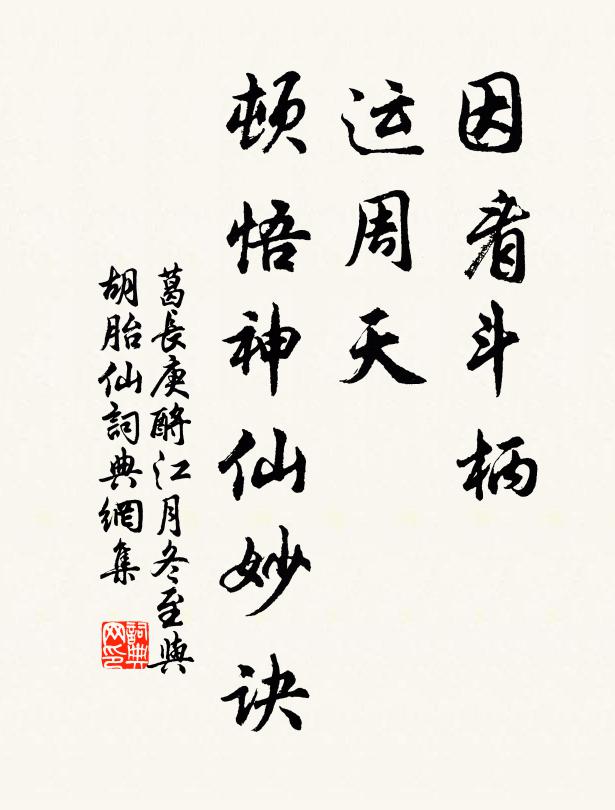 因看斗柄
运周天
顿悟神仙妙诀
葛長庚酹江月冬至與
胡胎仙詞典網集
詞典
网印